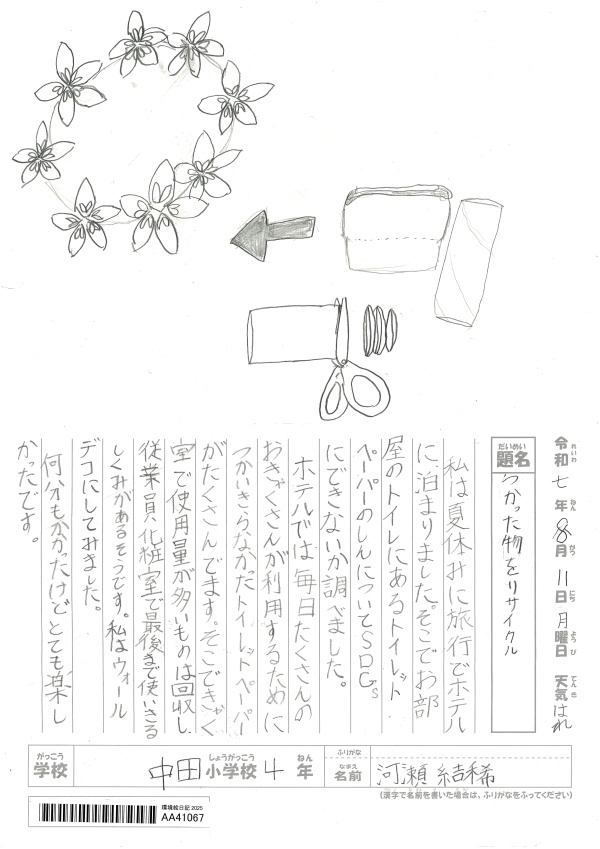 令和 七 年 8 月 11 日 月 曜日 天気 はれ
れいわ ねん がつ にち ようび てんき
だいめい
題名 つかった物をリサイクル
私は夏休みに旅行でホテル
に泊まりました。そこでお部
屋のトイレにあるトイレット
ペーパーのしんについてSDGs
にできないか調べました。
ホテルでは毎日たくさんの
おきゃくさんが利用するために
つかいきらなかたトイレットペーパー
がたくさんでます。そこできゃく
室で使用量が多いものは回収し
従業員、化粧室で最後まで使いきる
しくみがあるそうです。私はウォール
デコにしてみました。
何分もかかたけどとても楽し
かったです。
がっこう しょうがっこう ねん
学校 中田 小学校 4 年
ふりがな
なまえ
名前 河瀬 結稀
(漢字で名前を書いた場合は、ふりがなをふってください)
環境絵日記 2025
AA41067